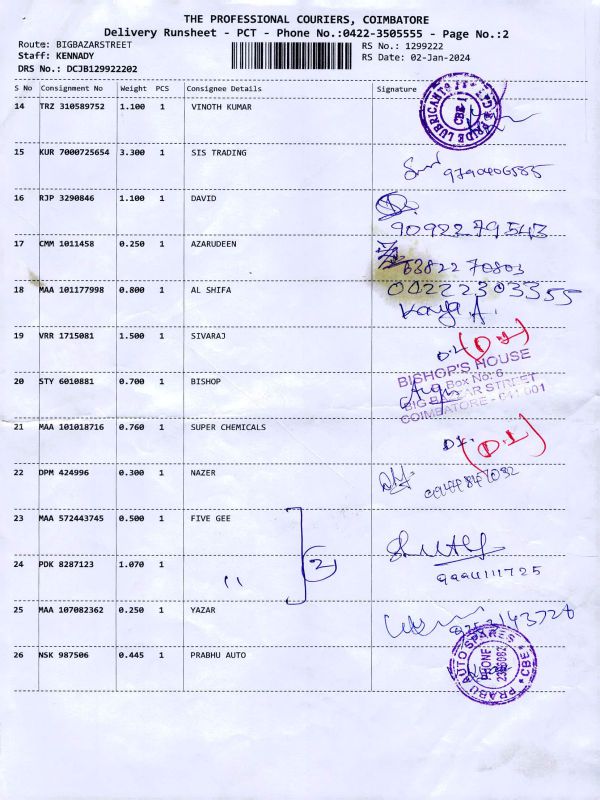 THE PROFESSIONAL COURIERS, COIMBATORE
Delivery Runsheet - PCT - Phone No.:0422-3505555 - Page No.:2
Route: BIGBAZARSTREET RS No.: 1299222
Staff: KENNADY RS Date: 02-Jan-2024
DRS No.: DCJB129922202
S No Consignment No Weight PCS Consignee Details Signature
14 TRZ 310589752 1.100 1 VINOTH KUMAR
PRIDE LUBRICANTS
CBE-1
15 KUR 7000725654 3.300 1 SIS TRADING
16 RJP 3290846 1.100 1 DAVID
9092279543
17 CMM 1011458 0.250 1 AZARUDEEN
6382270803
18 MAA 101177998 0.800 1 AL SHIFA
00222303355
Kaya A.
19 VRR 1715081 1.500 1 SIVARAJ
D.L (D.L)
20 STY 6010881 0.700 1 BISHOP
BISHOP'S HOUSE
Box No: 6
BIG BAZAAR STREET
COIMBATORE - 641 001
21 MAA 101018716 0.760 1 SUPER CHEMICALS
D.L (D.L)
22 DPM 424996 0.300 1 NAZER
23 MAA 572443745 0.500 1 FIVE GEE
2
24 PDK 8287123 1.070 1 "
9994111725
25 MAA 107082362 0.250 1 YAZAR
26 NSK 987506 0.445 1 PRABHU AUTO
PRABU AUTO SPARES
PHONE
CBE